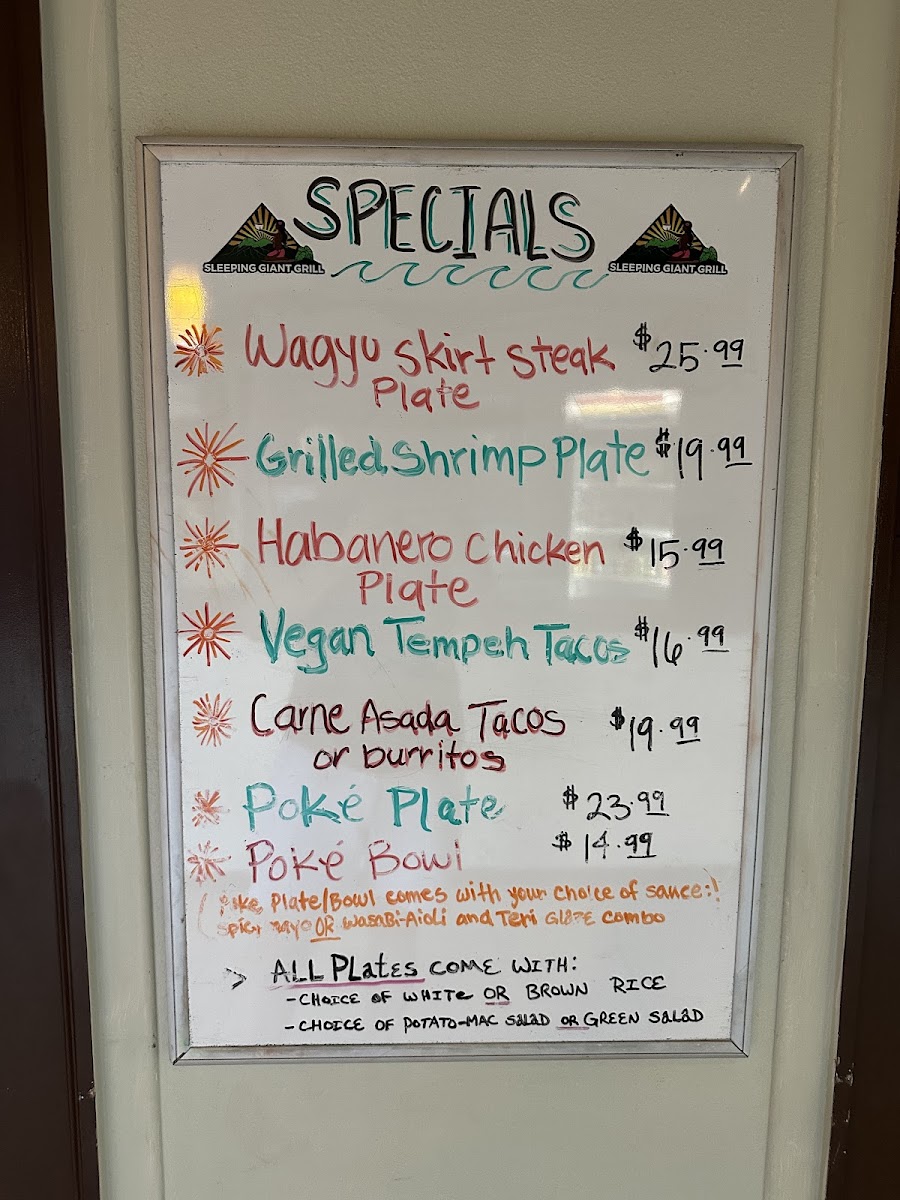 SPECIALS
SLEEPING GIANT GRILL
SLEEPING GIANT GRILL
Wagyu Skirt Steak $25.99
Plate
Grilled Shrimp Plate $19.99
Habanero Chicken $15.99
Plate
Vegan Tempeh Tacos $16.99
Carne Asada Tacos $19.99
or burritos
Poké Plate $23.99
Poké Bowl $14.99
(Poke Plate/Bowl comes with your choice of sauce:!
Spicy mayo OR WasaBi-Aioli and Teri GlaZE combo
> ALL PLates COME WITH:
-CHOICE OF WHITe OR BROWN RICE
-CHOICE OF POTATO-MAC SalaD OR GREEN SalaD